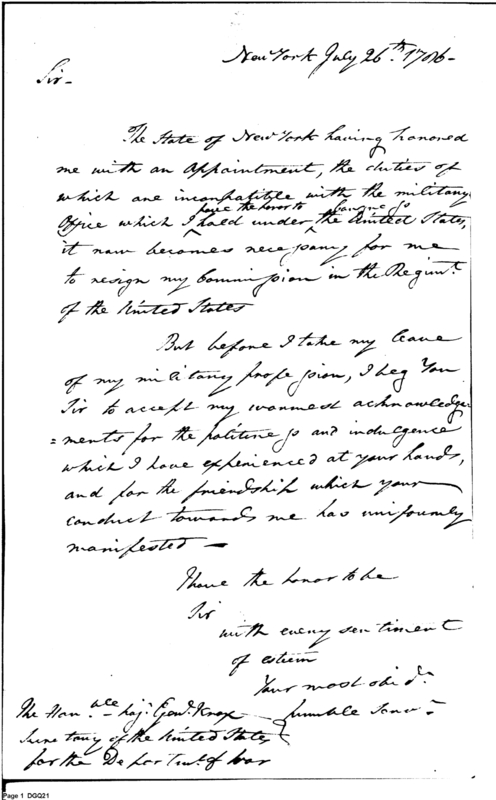 New York July 26th. 1786 -
Sir -
The State of New York having honored
me with an Appointment, the duties of
which are incompatible with the military
have the honor to
Office which I hold under the United States,
it now becomes necessary for me
to resign my Commission in the Regimt.
of the United States
But before I take my leave
of my military profession, I beg You
Sir to accept my warmest acknowledge
=ments for the politeness and indulgence
which I have experienced at your hands,
and for the friendship which your
conduct towards me has uniformly
manifested —
I have the honor to be
Sir
with every sentiment
of esteem
Your most obedt.
The Honble. Majr. Genl. Knox humble Servt.
Secretary of the United States
for the Departmt. of War
Page 1 DGQ21